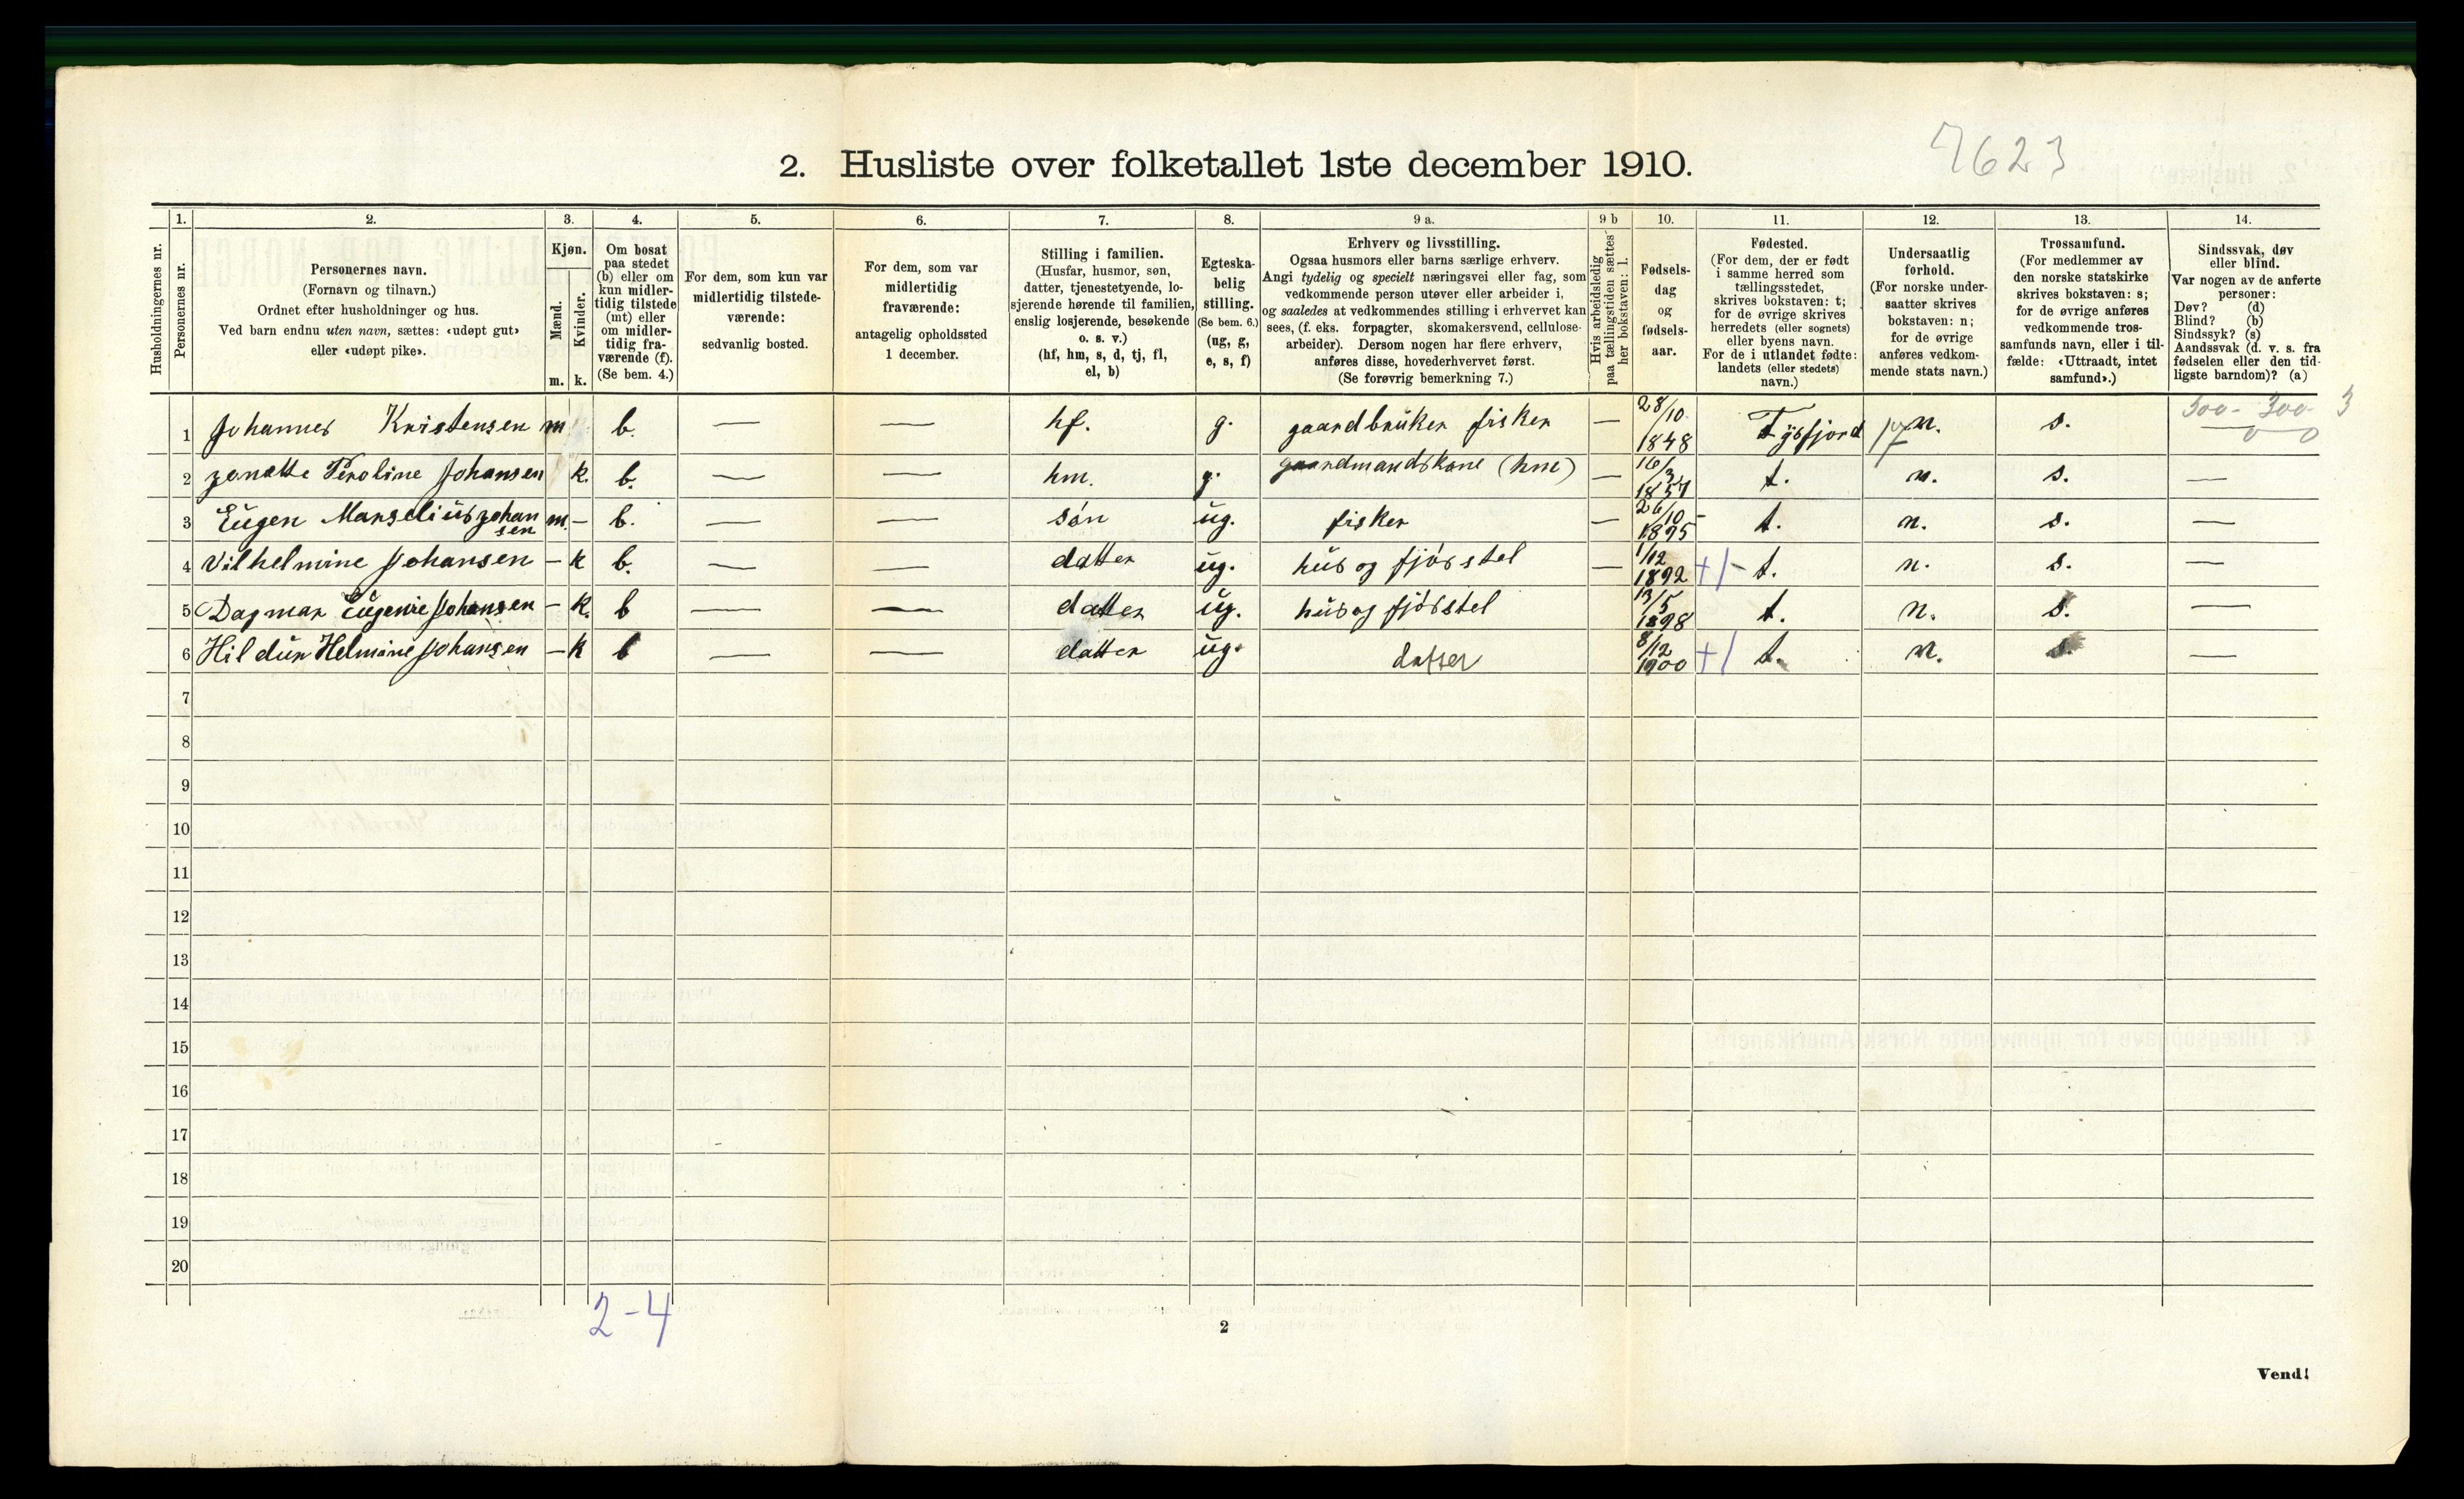 7623
2. Husliste over folketallet 1ste december 1910.
Husholdningernes nr.
1.
Personernes nr.
2.
Personernes navn.
(Fornavn og tilnavn.)
Ordnet efter husholdninger og hus.
Ved barn endnu uten navn, sættes: «udøpt gut»
eller «udøpt pike».
3.
Kjøn.
Mænd.
Kvinder.
m. k.
4.
Om bosat
paa stedet
(b) eller om
kun midler-
tidig tilstede
(mt) eller
om midler-
tidig fra-
værende (f).
(Se bem. 4.)
5.
For dem, som kun var
midlertidig tilstede-
værende:
sedvanlig bosted.
6.
For dem, som var
midlertidig
fraværende:
antagelig opholdssted
1 december.
7.
Stilling i familien.
(Husfar, husmor, søn,
datter, tjenestetyende, lo-
sjerende hørende til familien,
enslig losjerende, besøkende
o. s. v.)
(hf, hm, s, d, tj, fl,
el, b)
8.
Egteska-
belig
stilling.
(Se bem. 6.)
(ug, g,
e, s, f)
9 a.
Erhverv og livsstilling.
Ogsaa husmors eller barns særlige erhverv.
Angi tydelig og specielt næringsvei eller fag, som
vedkommende person utøver eller arbeider i,
og saaledes at vedkommendes stilling i erhvervet kan
sees, (f. eks. forpagter, skomakersvend, cellulose-
arbeider). Dersom nogen har flere erhverv,
anføres disse, hovederhvervet først.
(Se forøvrig bemerkning 7.)
9 b
Hvis arbeidsledig
paa tællingstiden sættes
her bokstaven: l.
10.
Fødsels-
dag
og
fødsels-
aar.
11.
Fødested.
(For dem, der er født
i samme herred som
tællingsstedet,
skrives bokstaven: t;
for de øvrige skrives
herredets (eller sognets)
eller byens navn.
For de i utlandet fødte:
landets (eller stedets)
navn.)
12.
Undersaatlig
forhold.
(For norske under-
saatter skrives
bokstaven: n;
for de øvrige
anføres vedkom-
mende stats navn.)
13.
Trossamfund.
(For medlemmer av
den norske statskirke
skrives bokstaven: s;
for de øvrige anføres
vedkommende tros-
samfunds navn, eller i til-
fælde: «Uttraadt, intet
samfund».)
14.
Sindssvak, døv
eller blind.
Var nogen av de anførte
personer:
Døv? (d)
Blind? (b)
Sindssyk? (s)
Aandssvak (d. v. s. fra
fødselen eller den tid-
ligste barndom)? (a)
1 Johannes Kristensen m b. — — hf. g. gaardbruker fisker — 28/10 1848 Tysfjord n. s. 300- 300- 3
0 0
2 Peroline Johansen k. b. — — hm. g. gaardmandskone (hm) — 16/3 1857 t. n. s. —
3 Eugen Marselius Johansen m. – b. — — søn ug. fisker — 26/10 1895 t. n. s. —
4 Vilhelmine Johansen – k b. — — datter ug. hus og fjøsstel — 1/12 1892 +1 – t. n. s. —
5 Dagmar Eugenie Johansen – k. b — — datter ug. hus og fjøsstel 13/5 1898 t. n. s. —
6 Hildur Helmine Johansen – k b — — datter ug. datter 8/12 1900 +1 t. n. s. —
7
8
9
10
11
12
13
14
15
16
17
18
19
20
2-4
2
Vend!